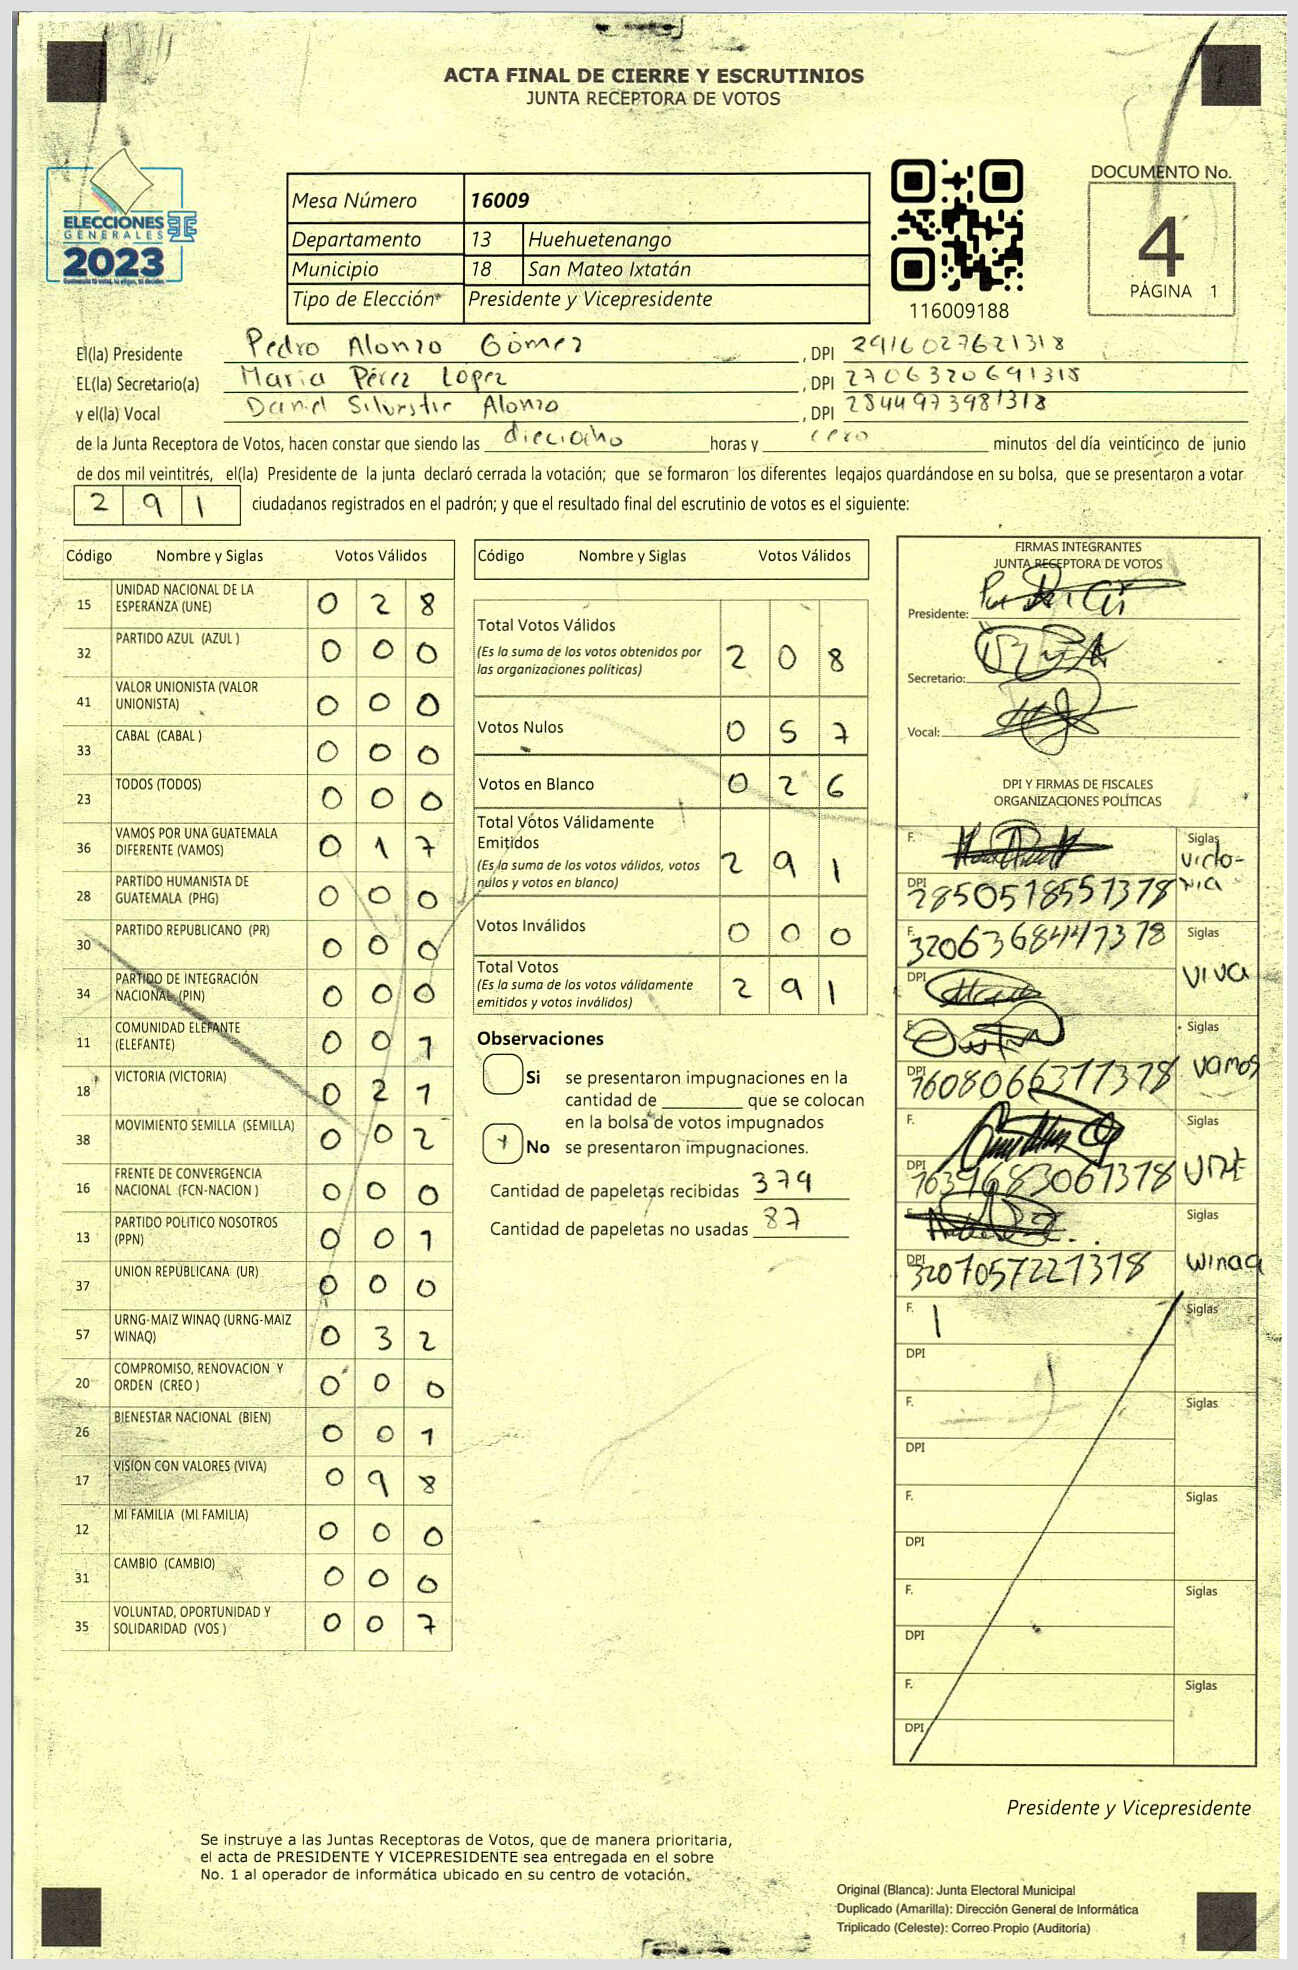 ACTA FINAL DE CIERRE Y ESCRUTINIOS
JUNTA RECEPTORA DE VOTOS
ELECCIONES
GENERALES
2023
Mesa Número 16009
Departamento 13 Huehuetenango
Municipio 18 San Mateo Ixtatán
Tipo de Elección Presidente y Vicepresidente
116009188
DOCUMENTO No.
4
PÁGINA 1
El(la) Presidente Pedro Alonzo Gómez , DPI 2916027621318
EL(la) Secretario(a) Maria Pérez Lopez , DPI 2706320691318
y el(la) Vocal Daniel Silvestre Alonzo , DPI 2844973981318
de la Junta Receptora de Votos, hacen constar que siendo las dieciocho horas y cero minutos del día veinticinco de junio
de dos mil veintitrés, el(la) Presidente de la junta declaró cerrada la votación; que se formaron los diferentes legajos guardándose en su bolsa, que se presentaron a votar
291 ciudadanos registrados en el padrón; y que el resultado final del escrutinio de votos es el siguiente:
Código Nombre y Siglas Votos Válidos
15 UNIDAD NACIONAL DE LA ESPERANZA (UNE) 0 2 8
32 PARTIDO AZUL (AZUL ) 0 0 0
41 VALOR UNIONISTA (VALOR UNIONISTA) 0 0 0
33 CABAL (CABAL ) 0 0 0
23 TODOS (TODOS) 0 0 0
36 VAMOS POR UNA GUATEMALA DIFERENTE (VAMOS) 0 1 7
28 PARTIDO HUMANISTA DE GUATEMALA (PHG) 0 0 0
30 PARTIDO REPUBLICANO (PR) 0 0 0
34 PARTIDO DE INTEGRACIÓN NACIONAL (PIN) 0 0 0
11 COMUNIDAD ELEFANTE (ELEFANTE) 0 0 1
18 VICTORIA (VICTORIA) 0 2 1
38 MOVIMIENTO SEMILLA (SEMILLA) 0 0 2
16 FRENTE DE CONVERGENCIA NACIONAL (FCN-NACION ) 0 0 0
13 PARTIDO POLITICO NOSOTROS (PPN) 0 0 1
37 UNION REPUBLICANA (UR) 0 0 0
57 URNG-MAIZ WINAQ (URNG-MAIZ WINAQ) 0 3 2
20 COMPROMISO, RENOVACION Y ORDEN (CREO ) 0 0 0
26 BIENESTAR NACIONAL (BIEN) 0 0 1
17 VISION CON VALORES (VIVA) 0 9 8
12 MI FAMILIA (MI FAMILIA) 0 0 0
31 CAMBIO (CAMBIO) 0 0 0
35 VOLUNTAD, OPORTUNIDAD Y SOLIDARIDAD (VOS ) 0 0 7
Código Nombre y Siglas Votos Válidos
Total Votos Válidos 2 0 8
(Es la suma de los votos obtenidos por
las organizaciones políticas)
Votos Nulos 0 5 7
Votos en Blanco 0 2 6
Total Votos Válidamente
Emitidos 2 9 1
(Es la suma de los votos válidos, votos
nulos y votos en blanco)
Votos Inválidos 0 0 0
Total Votos 2 9 1
(Es la suma de los votos válidamente
emitidos y votos inválidos)
Observaciones
Si se presentaron impugnaciones en la
cantidad de ________ que se colocan
en la bolsa de votos impugnados
No se presentaron impugnaciones.
Cantidad de papeletas recibidas 379
Cantidad de papeletas no usadas 87
FIRMAS INTEGRANTES
JUNTA RECEPTORA DE VOTOS
Presidente:
Secretario:
Vocal:
DPI Y FIRMAS DE FISCALES
ORGANIZACIONES POLÍTICAS
F. Siglas
Victo-
ria
DPI 2850518551318
F. 3206368441318 Siglas
VIVA
DPI
F. Siglas
vamos
DPI 1608066311318
F. Siglas
UNE
DPI 1639683061318
F. Siglas
winaq
DPI 3207057221318
F. Siglas
DPI
F. Siglas
DPI
F. Siglas
DPI
F. Siglas
DPI
F. Siglas
DPI
Presidente y Vicepresidente
Se instruye a las Juntas Receptoras de Votos, que de manera prioritaria,
el acta de PRESIDENTE Y VICEPRESIDENTE sea entregada en el sobre
No. 1 al operador de informática ubicado en su centro de votación.
Original (Blanca): Junta Electoral Municipal
Duplicado (Amarilla): Dirección General de Informática
Triplicado (Celeste): Correo Propio (Auditoría)